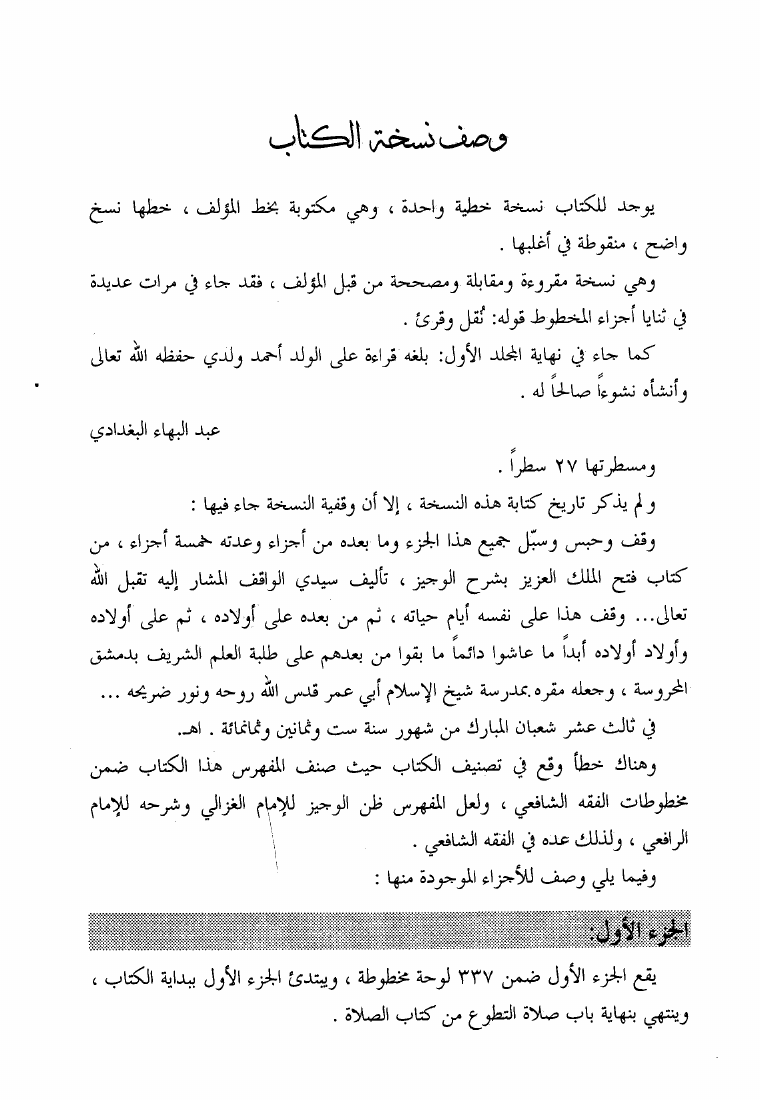 وصف نسخة الكتاب
يوجد للكتاب نسخة خطية واحدة ، وهي مكتوبة بخط المؤلف ، خطها نسخ
واضح ، منقوطة في أغلبها .
وهي نسخة مقروءة ومقابلة ومصححة من قبل المؤلف ، فقد جاء في مرات عديدة
في ثنايا أجزاء المخطوط قوله: نُقل وقرئ .
كما جاء في نهاية المجلد الأول: بلغه قراءة على الولد أحمد ولدي حفظه الله تعالى
وأنشأه نشوءاً صالحاً له .
عبد البهاء البغدادي
ومسطرتها ٢٧ سطراً .
و لم يذكر تاريخ كتابة هذه النسخة ، إلا أن وقفية النسخة جاء فيها :
وقف وحبس وسبّل جميع هذا الجزء وما بعده من أجزاء وعدته خمسة أجزاء ، من
كتاب فتح الملك العزيز بشرح الوجيز ، تأليف سيدي الواقف المشار إليه تقبل الله
تعالى... وقف هذا على نفسه أيام حياته ، ثم من بعده على أولاده ، ثم على أولاده
وأولاد أولاده أبداً ما عاشوا دائماً ما بقوا من بعدهم على طلبة العلم الشريف بدمشق
المحروسة ، وجعله مقره.بمدرسة شيخ الإسلام أبي عمر قدس الله روحه ونور ضريحه ...
في ثالث عشر شعبان المبارك من شهور سنة ست وثمانين وثمانمائة . اهـ.
وهناك خطأ وقع في تصنيف الكتاب حيث صنف المفهرس هذا الكتاب ضمن
مخطوطات الفقه الشافعي ، ولعل المفهرس ظن الوجيز للإمام الغزالي وشرحه للإمام
الرافعي ، ولذلك عده في الفقه الشافعي .
وفيما يلي وصف للأجزاء الموجودة منها :
الجزء الأول:
يقع الجزء الأول ضمن ٣٣٧ لوحة مخطوطة ، ويبتدئ الجزء الأول ببداية الكتاب ،
وينتهي بنهاية باب صلاة التطوع من كتاب الصلاة .